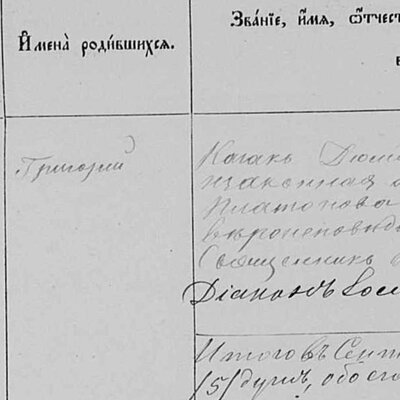 И҆мена̀ роди́вшихся.
Зва́нїе, и҆́мя, ѻ҆тчест
в
Григорий
Казакъ
законная
Платонова
вѣроисповѣд
Священникъ
Діаконъ
Итого въ Сент
(5) душъ, обоего